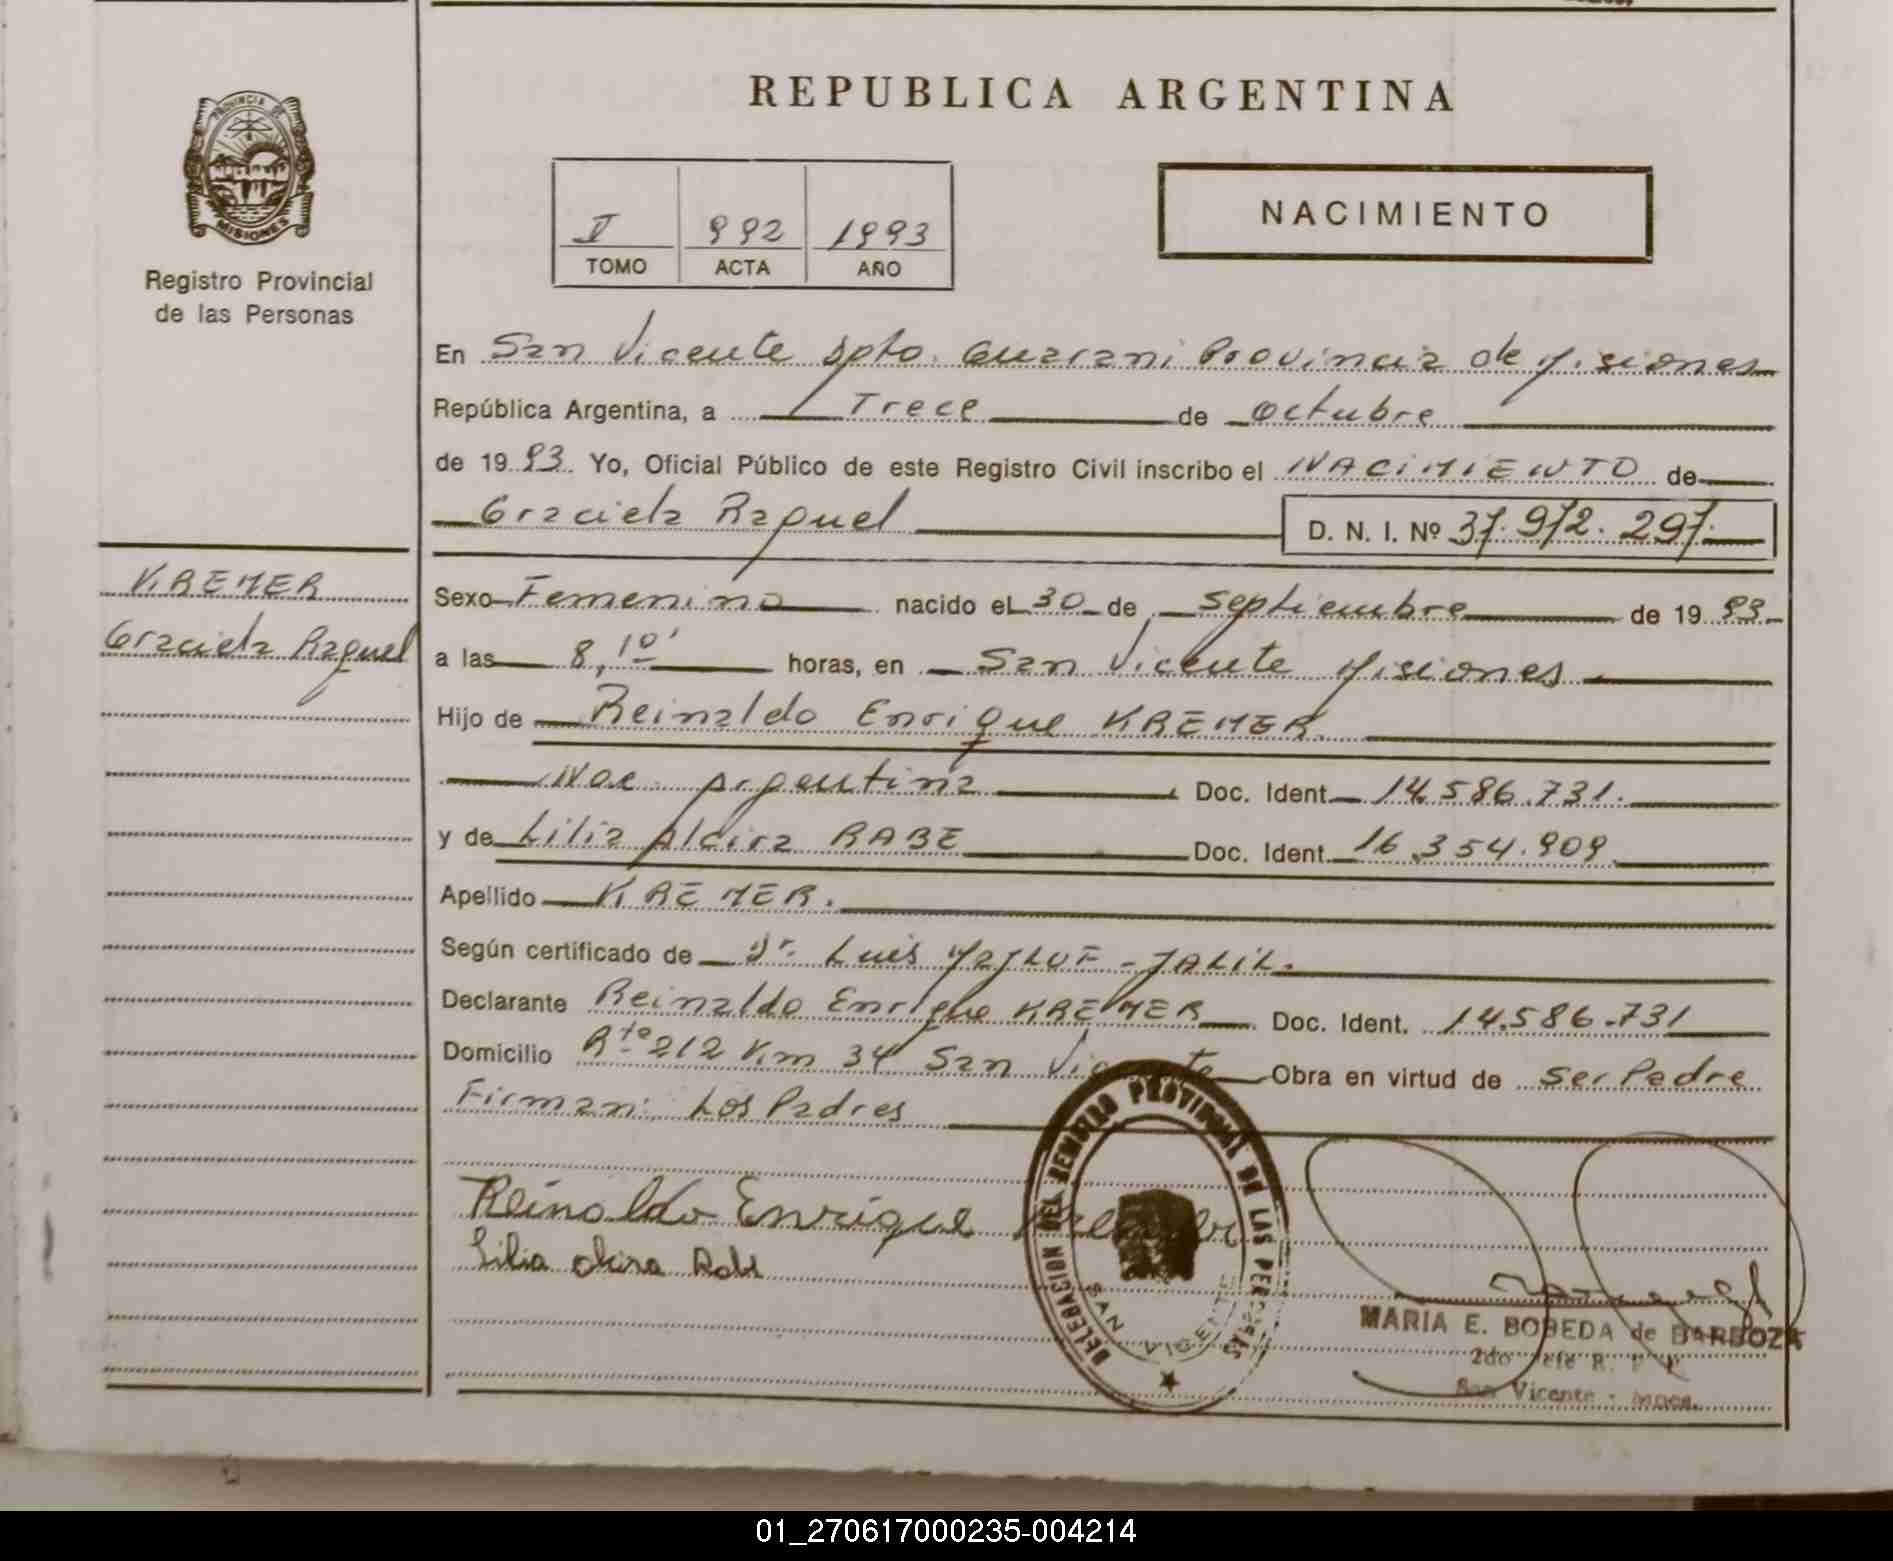 REPUBLICA ARGENTINA
PROVINCIA DE
MISIONES
Registro Provincial
de las Personas
V 992 1993
TOMO ACTA AÑO
NACIMIENTO
En San Vicente Dpto. Guarani Provincia de Misiones
República Argentina, a Trece de octubre
de 1993. Yo, Oficial Público de este Registro Civil inscribo el NACIMIENTO de
Graciela Raquel D. N. I. Nº 37.972.297.
KREMER
Graciela Raquel
Sexo Femenino nacido el 30 de septiembre de 1993.
a las 8,10' horas, en San Vicente Misiones
Hijo de Reinaldo Enrique KREMER.
Nac. Argentina Doc. Ident. 14.586.731.
y de Lilia Alcira RABE Doc. Ident. 16.354.909.
Apellido KREMER.
Según certificado de Dr. Luis MAJLUF - JALIL.
Declarante Reinaldo Enrique KREMER Doc. Ident. 14.586.731
Domicilio Rta 212 Km 34 San Vicente Obra en virtud de ser Padre
Firman: Los Padres
Reinaldo Enrique Kremer
Lilia Alcira Rabe
DELEGACION DEL REGISTRO PROVINCIAL DE LAS PERSONAS
SAN VICENTE
MARIA E. BOBEDA de BARBOZA
2do Jefe R. P. P.
San Vicente - Mnes.
01_270617000235-004214